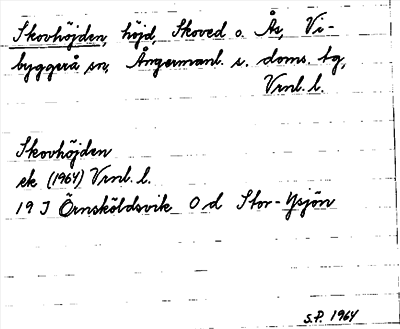 Skovhöjden, höjd, Skoved o. Ås, Vi-
byggerå sn, Ångermanl. s. doms. tg,
Vrnl. l.
Skovhöjden
ek (1964) Vrnl. l.
19 J Örnsköldsvik O d Stor-Ysjön
S.P. 1964